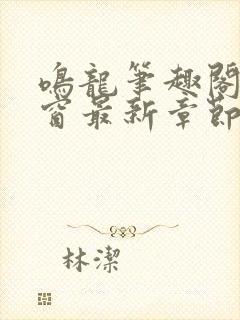 鳴龍筆趣閣
窗最新章節
林潔